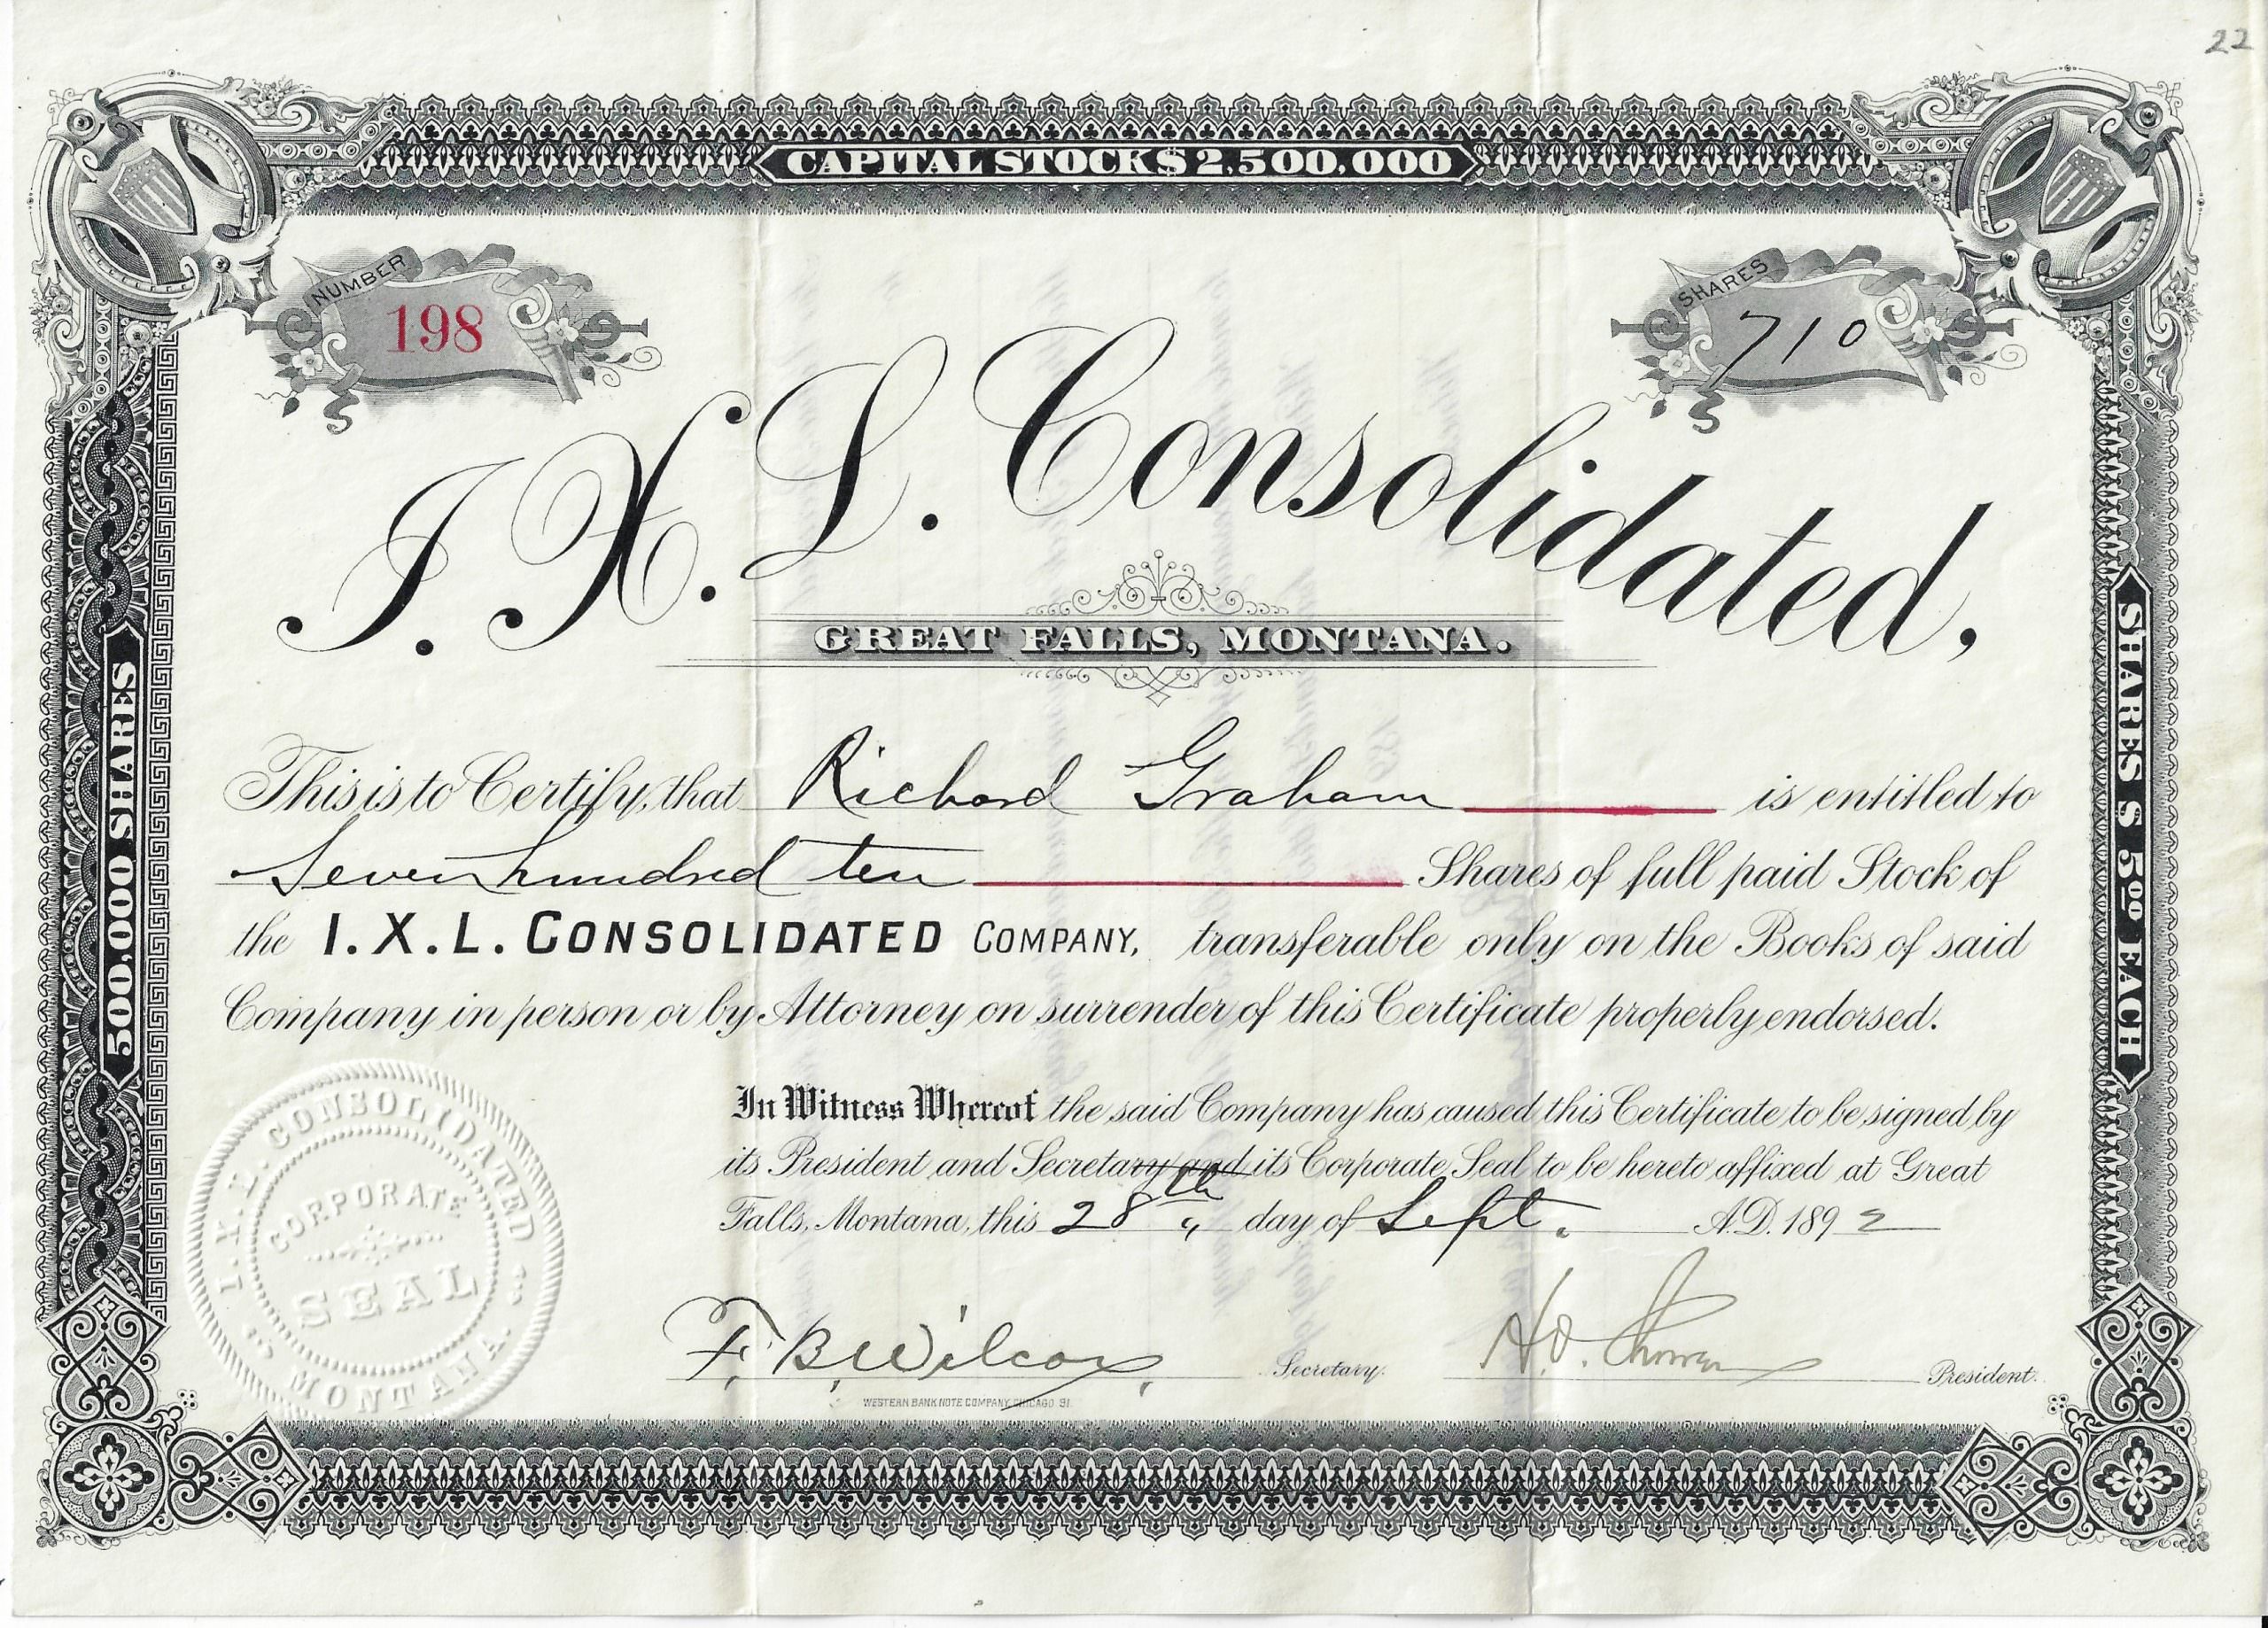 22
CAPITAL STOCK $ 2,500,000
NUMBER
198
SHARES
710
I. X. L. Consolidated,
GREAT FALLS, MONTANA.
500,000 SHARES
SHARES $ 5.00 EACH
This is to Certify, that Richard Graham is entitled to
Seven hundred ten Shares of full paid Stock of
the I. X. L. CONSOLIDATED COMPANY, transferable only on the Books of said
Company in person or by Attorney on surrender of this Certificate properly endorsed.
In Witness Whereof the said Company has caused this Certificate to be signed by
its President and Secretary and its Corporate Seal to be hereto affixed at Great
Falls, Montana, this 28th day of Sept. A.D. 1892
I. X. L. CONSOLIDATED
CORPORATE
SEAL
MONTANA.
F. B. Wilcox, Secretary.
H.O. President.
WESTERN BANK NOTE COMPANY, CHICAGO 91